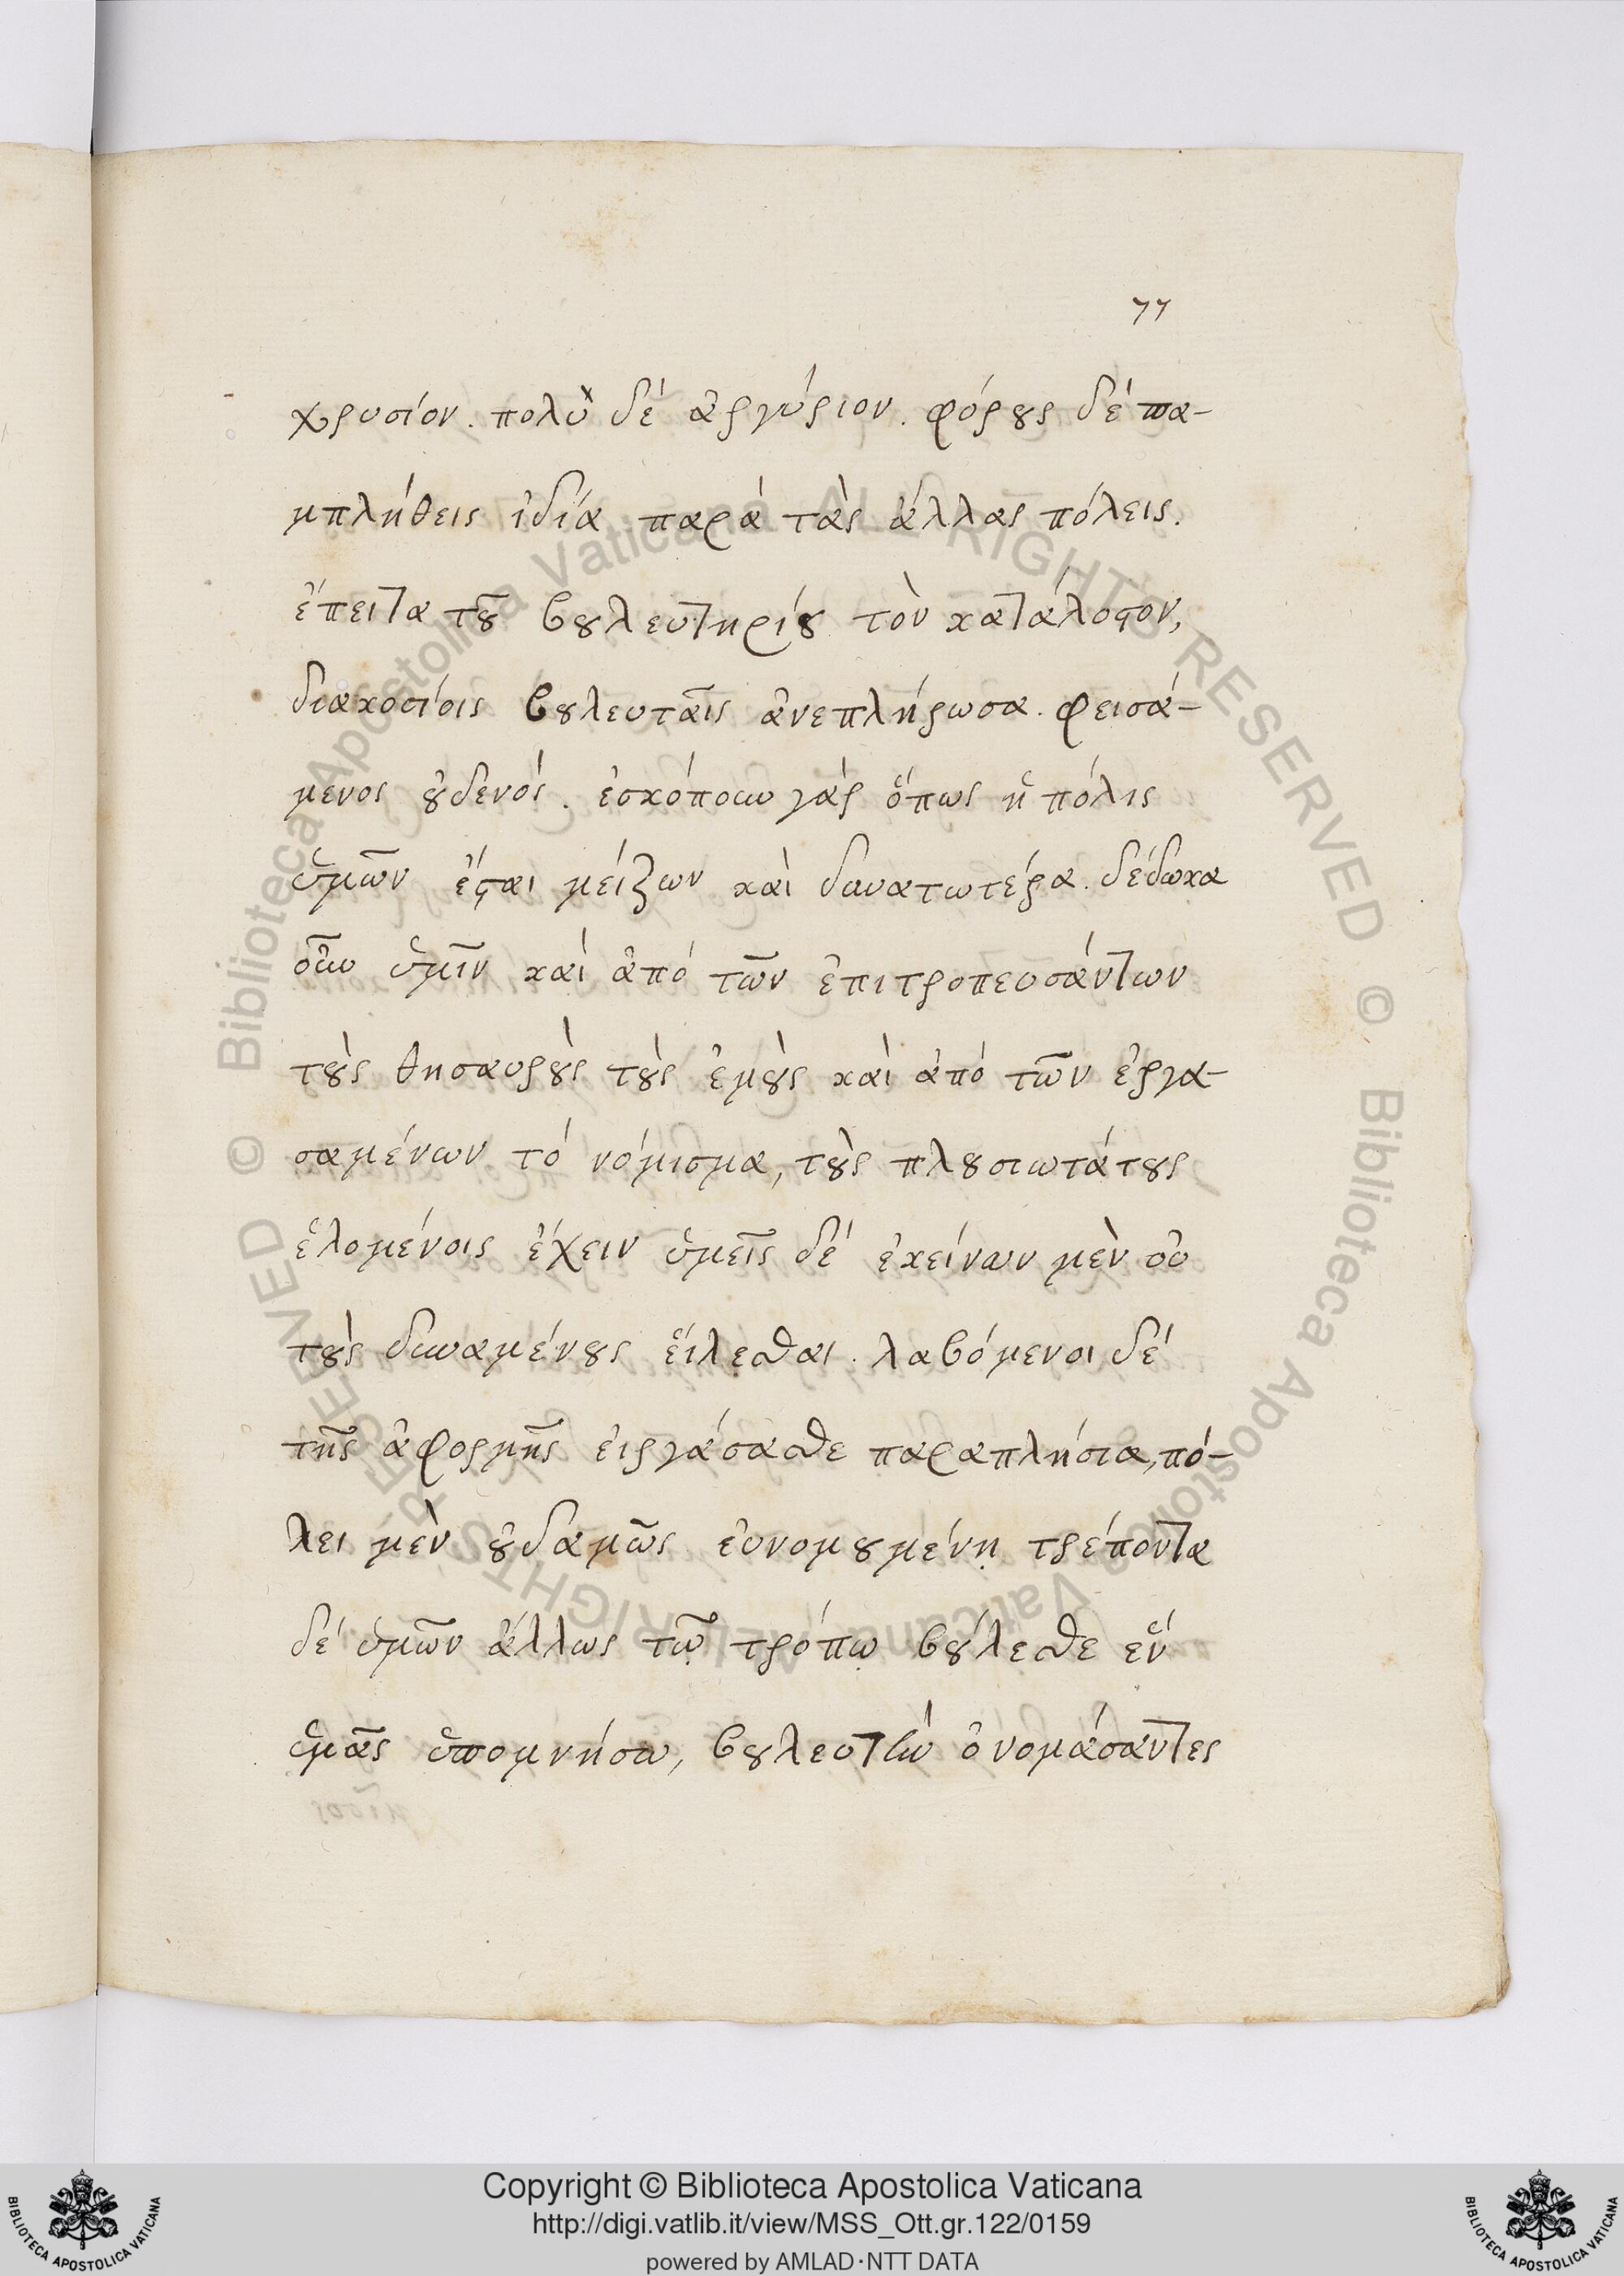 77
χρυσίον. πολὺ δέ ἀργύριον. φόρȣς δέ πα-
μπλήθεις ἰδία παρά τὰς ἄλλας πόλεις.
ἔπειτα τȣ͂ βȣλευτηρίȣ τὸν κατάλογον,
διακοσίοις βȣλευταῖς ἀνεπλήρωσα. φεισά-
μενος ȣ̓δενός. ἐσκόπουν γάρ ὅπως ἡ πόλις
ὑμῶν ἔσται μείζων καὶ δυνατωτέρα. δέδωκα
οὖν ὑμῖν καί ἀπό τῶν ἐπιτροπευσάντων
τȣ̀ς θησαυρȣ̀ς τȣ̀ς ἐμȣ̀ς καὶ ἀπό τῶν ἐργα-
σαμένων τό νόμισμα, τȣ̀ς πλȣσιωτάτȣς
ἑλομένοις ἔχειν ὑμεῖς δέ ἐκείνων μὲν οὐ
τȣ̀ς δυναμένȣς εἵλεσθαι. λαβόμενοι δέ
τῆς ἀφορμῆς εἰργάσασθε παραπλήσια, πό-
λει μὲν ȣ̓δαμῶς εὐνομȣμένῃ τρέποντα
δέ ὑμῶν ἄλλως τῷ τρόπῳ βȣ́λεσθε ἕν
ὑμᾶς ὑπομνήσω, βȣλευτὴν ὀνομάσαντες
Copyright © Biblioteca Apostolica Vaticana
http://digi.vatlib.it/view/MSS_Ott.gr.122/0159
powered by AMLAD·NTT DATA
BIBLIOTECA APOSTOLICA VATICANA
BIBLIOTECA APOSTOLICA VATICANA
© Biblioteca Apostolica Vaticana ALL RIGHTS RESERVED © Biblioteca Apostolica Vaticana ALL RIGHTS RESERVED